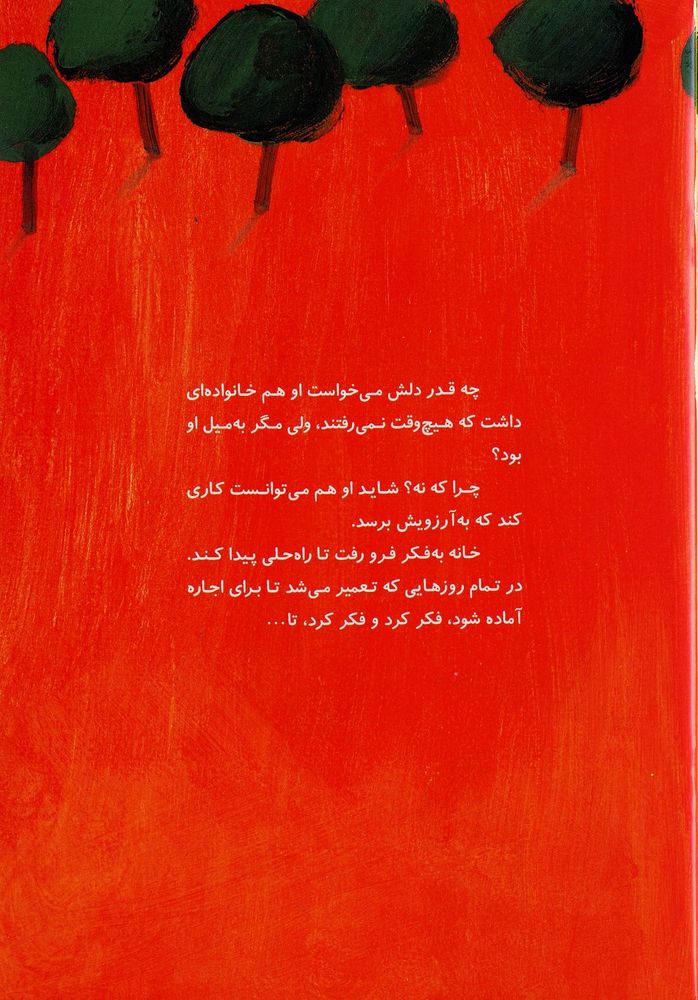 چه قدر دلش می‌خواست او هم خانواده‌ای
داشت که هیچ‌وقت نمی‌رفتند، ولی مگر به‌میل او
بود؟
چرا که نه؟ شاید او هم می‌توانست کاری
کند که به‌آرزویش برسد.
خانه به‌فکر فرو رفت تا راه‌حلی پیدا کند.
در تمام روزهایی که تعمیر می‌شد تا برای اجاره
آماده شود، فکر کرد و فکر کرد، تا...